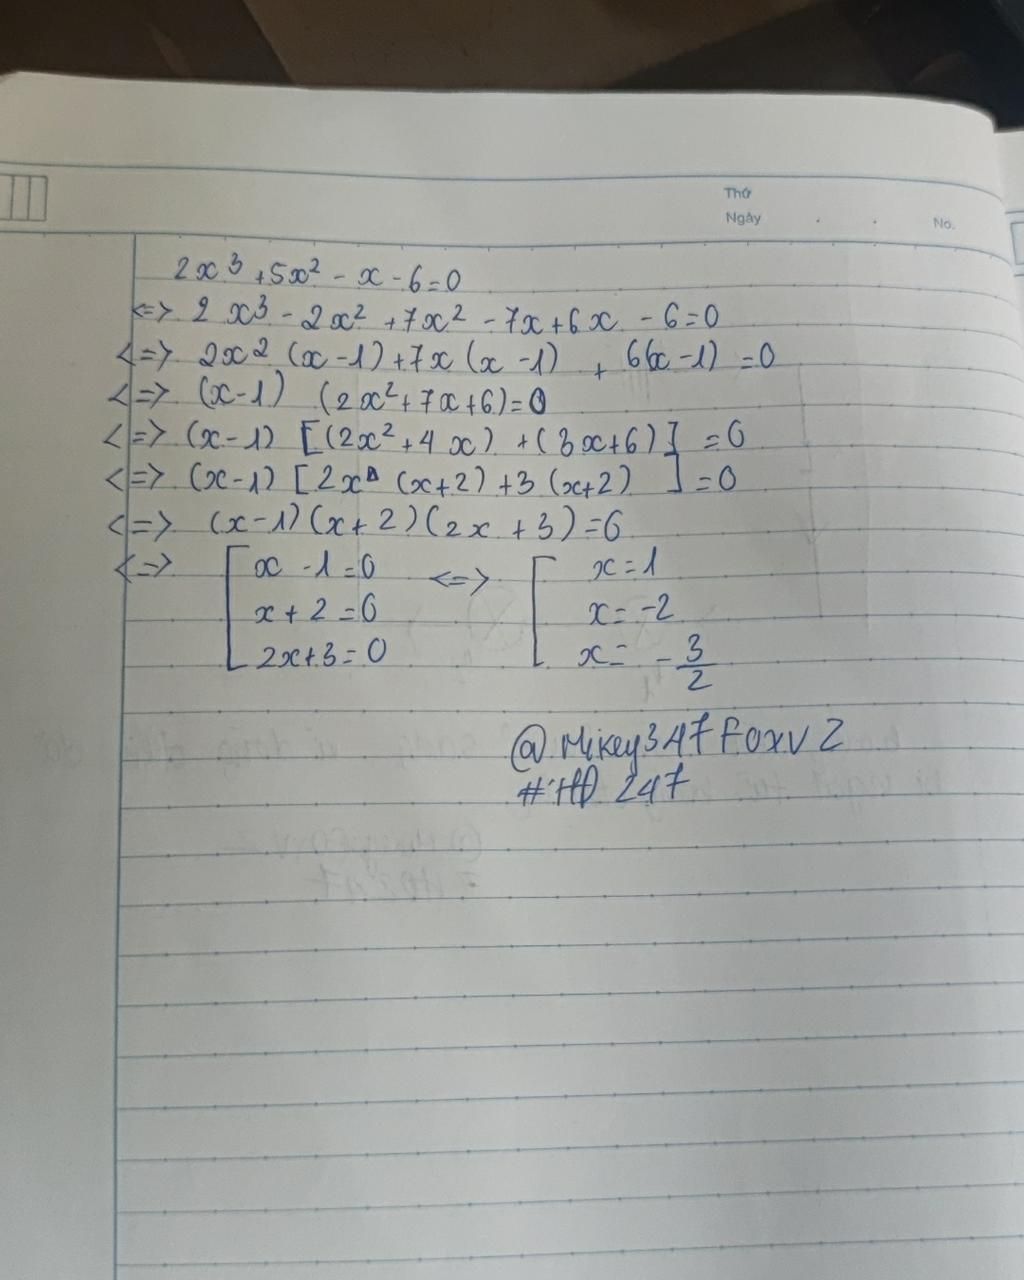 Thứ
Ngày . .
No.
2x³ + 5x² - x - 6 = 0
<=> 2x³ - 2x² + 7x² - 7x + 6x - 6 = 0
<=> 2x² (x - 1) + 7x (x - 1) + 6(x - 1) = 0
<=> (x - 1) (2x² + 7x + 6) = 0
<=> (x - 1) [(2x² + 4x) + (3x + 6)] = 0
<=> (x - 1) [2x (x + 2) + 3 (x + 2) ] = 0
<=> (x - 1) (x + 2) (2x + 3) = 0
<=> [ x - 1 = 0 <=> [ x = 1
x + 2 = 0 x = -2
2x + 3 = 0 x = - 3/2
@Mikey347FoxV2
#HD247